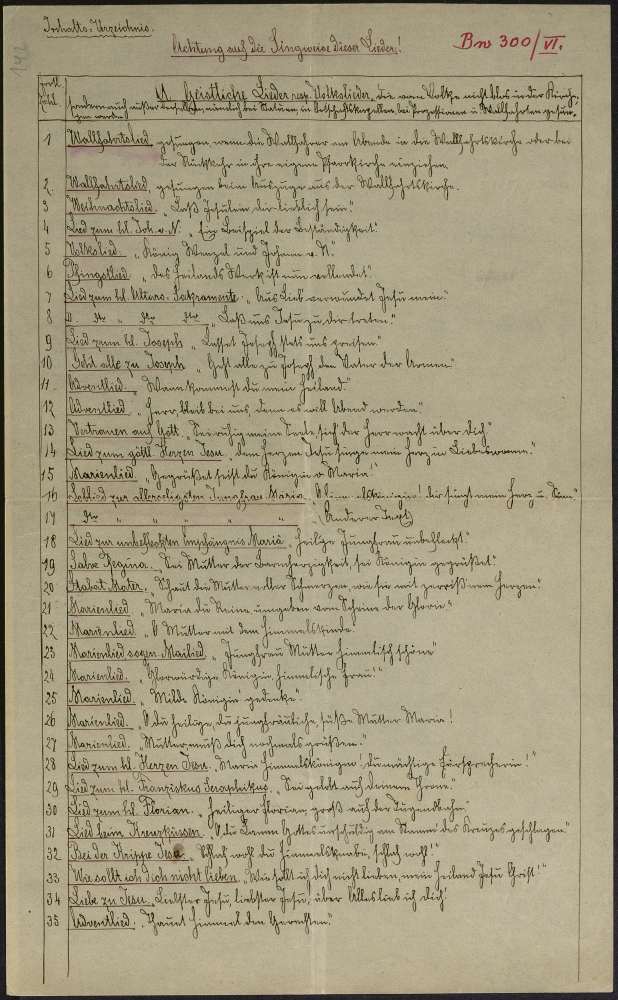 Inhalts-Verzeichnis.
142
Achtung auf die Singweise dieser Lieder!
Bn 300/VI.
fortl. Zahl
A. Geistliche Lieder resp. Volkslieder, die vom Volke nicht blos in der Kirche,
sondern auch außer derselben, nämlich bei Statuen, in Ortschaftskapellen, bei Prozessionen u. Wallfahrten gesungen werden.
1 Wallfahrtslied, gesungen, wenn die Wallfahrer am Abende in die Wallfahrtskirche oder bei
der Rückkehr in ihre eigene Pfarrkirche einziehen.
2. Wallfahrtslied, gesungen beim Auszuge aus der Wallfahrtskirche.
3 Weihnachtslied. „Laß Jesulein dir lieblich sein."
4 Lied zum hl. Joh. v. N. „Ein Beispiel der Beständigkeit."
5 Volkslied. „König Wenzel und Johann v. N."
6 Pfingstlied. „Des Heilands Werk ist nun vollendet."
7 Lied zum hl. Altars-Sakramente. „Aus Lieb' verwundet Jesu mein."
8 dto " dto dto „Laß uns Jesu zu dir treten."
9 Lied zum hl. Joseph „Lasset Joseph stets uns preisen."
10 Geht alle zu Joseph „Geht alle zu Joseph den Vater der Armen."
11. Adventlied. „Wann kommest du mein Heiland."
12 Adventlied „Herr, bleib bei uns, denn es will Abend werden."
13 Vertrauen auf Gott. „Sei ruhig meine Seele, sich' der Herr wacht über dich."
14 Lied zum göttl. Herzen Jesu. „Dem Herzen Jesu singe mein Herz in Liebeswonne."
15 Marienlied „Gegrüßet seist du Königin o Maria!"
16 Loblied zur allerseligsten Jungfrau Maria. dir singt mein Herz u.
17 dto " " " " " (Anderer Text)
18 Lied zur unbefleckten Empfängnis Mariä. „Heilige Jungfrau unbefleckt."
19 Salve Regina. „Sei Mutter der Barmherzigkeit, sei Königin gegrüßet."
20 Stabat Mater. „Schaut die Mutter voller Schmerzen, wie sie mit zerrißnem Herzen."
21 Marienlied „Maria du Reine umgeben vom Scheine der Glorie."
22 Marienlied. „O Mutter mit dem Himmelskinde."
23 Marienlied sogen. Mailied. „Jungfrau Mutter himmlisch schöne"
24 Marienlied. „Glorwürdige Königin, himmlische Frau!"
25 Marienlied. „Milde Königin gedenke."
26 Marienlied. „O du heilige, du jungfräuliche, süße Mutter Maria!
27 Marienlied. „Mutter, muß dich nochmals grüßen."
28 Lied zum hl. Herzen Jesu. „Maria Himmelskönigin! du mächtige Fürsprecherin!"
29 Lied zum hl. Franziskus Seraphikus. „Sei gelobt auf deinem Throne."
30 Lied zum hl. Florian. „Heiliger Florian, groß auf der Tugendbahn."
31 Lied beim Kreuzküssen. „O du Lamm Gottes unschuldig am Stamm des Kreuzes geschlagen."
32 Bei der Krippe Jesu. „Schlaf wohl du Himmelsknabe, schlaf wohl!"
33 Wie sollt ich dich nicht lieben. „Wie sollt ich dich nicht lieben, mein Heiland Jesu Christ!"
34 Liebe zu Jesu. „Liebster Jesu, liebster Jesu, über Alles lieb ich dich!
35 Adventlied. „Thauet Himmel den Gerechten."